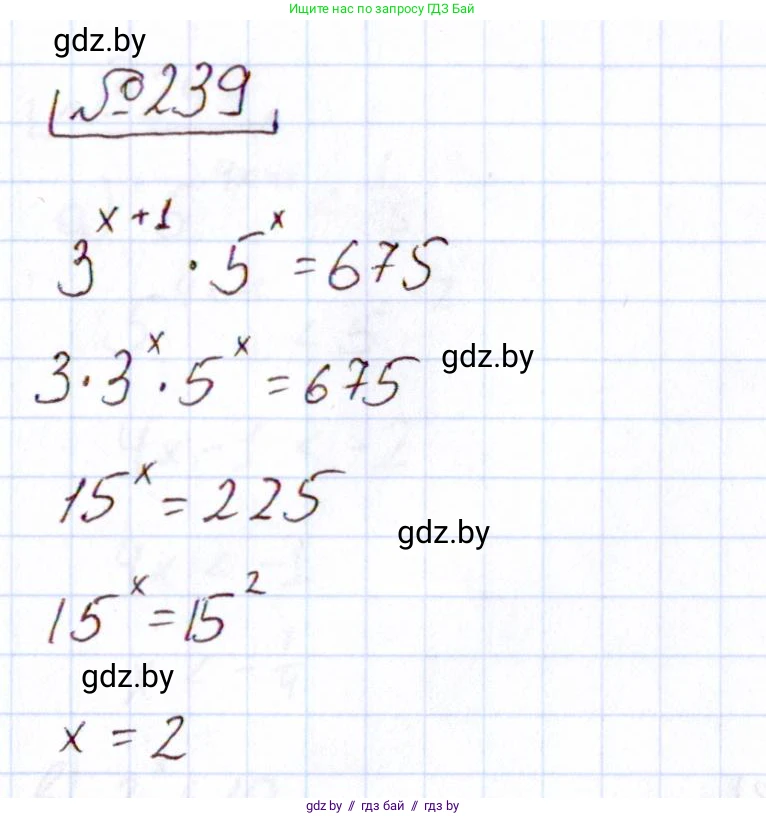 Ищите нас по запросу ГДЗ Бай
gdz.by
№239
3^{x+1} · 5^x = 675
3 · 3^x · 5^x = 675
gdz.by
15^x = 225
gdz.by
15^x = 15^2
gdz.by
x = 2
gdz.by // гдз бай // gdz.by